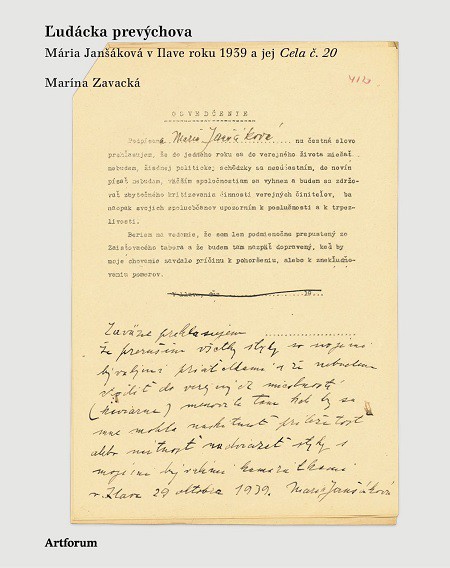 Ľudácka prevýchova
Mária Janšáková v Ilave roku 1939 a jej Cela č. 20
Marína Zavacká
41b
OSVEDČENIE
Podpísaná Mária Janšáková na čestné slovo
prehlasujem, že do jedného roku sa do verejného života miešať
nebudem, žiadnej politickej schôdzky sa nesúčastním, do novín
písať nebudem, väčším spoločnostiam sa vyhnem a budem sa zdržo-
vať zbytočného kritizovania činnosti verejných činiteľov, ba
naopak svojich spoluobčanov upozorním k poslušnosti a k trpez-
livosti.
Beriem na vedomie, že som len podmienečne prepustený zo
Zaisťovacieho tábora a že budem tam nazpät dopravený, keď by
moje chovanie zavdalo príčinu k pohoršeniu, alebo k znekľudňo-
vaniu pomerov.
V Ilave, dňa 19
Záväzne prehlasujem
že preruším všetky styky so svojimi
bývalými priateľkami a že nebudem
chodiť do verejných miestností
(kaviarne) menovite tam kde by sa
mne mohla naskytnúť príležitosť
alebo nutnosť nadviazať styky s
mojimi bývalými kamarátkami
v Ilave 29 októbra 1939. Mária Janšáková
Artforum